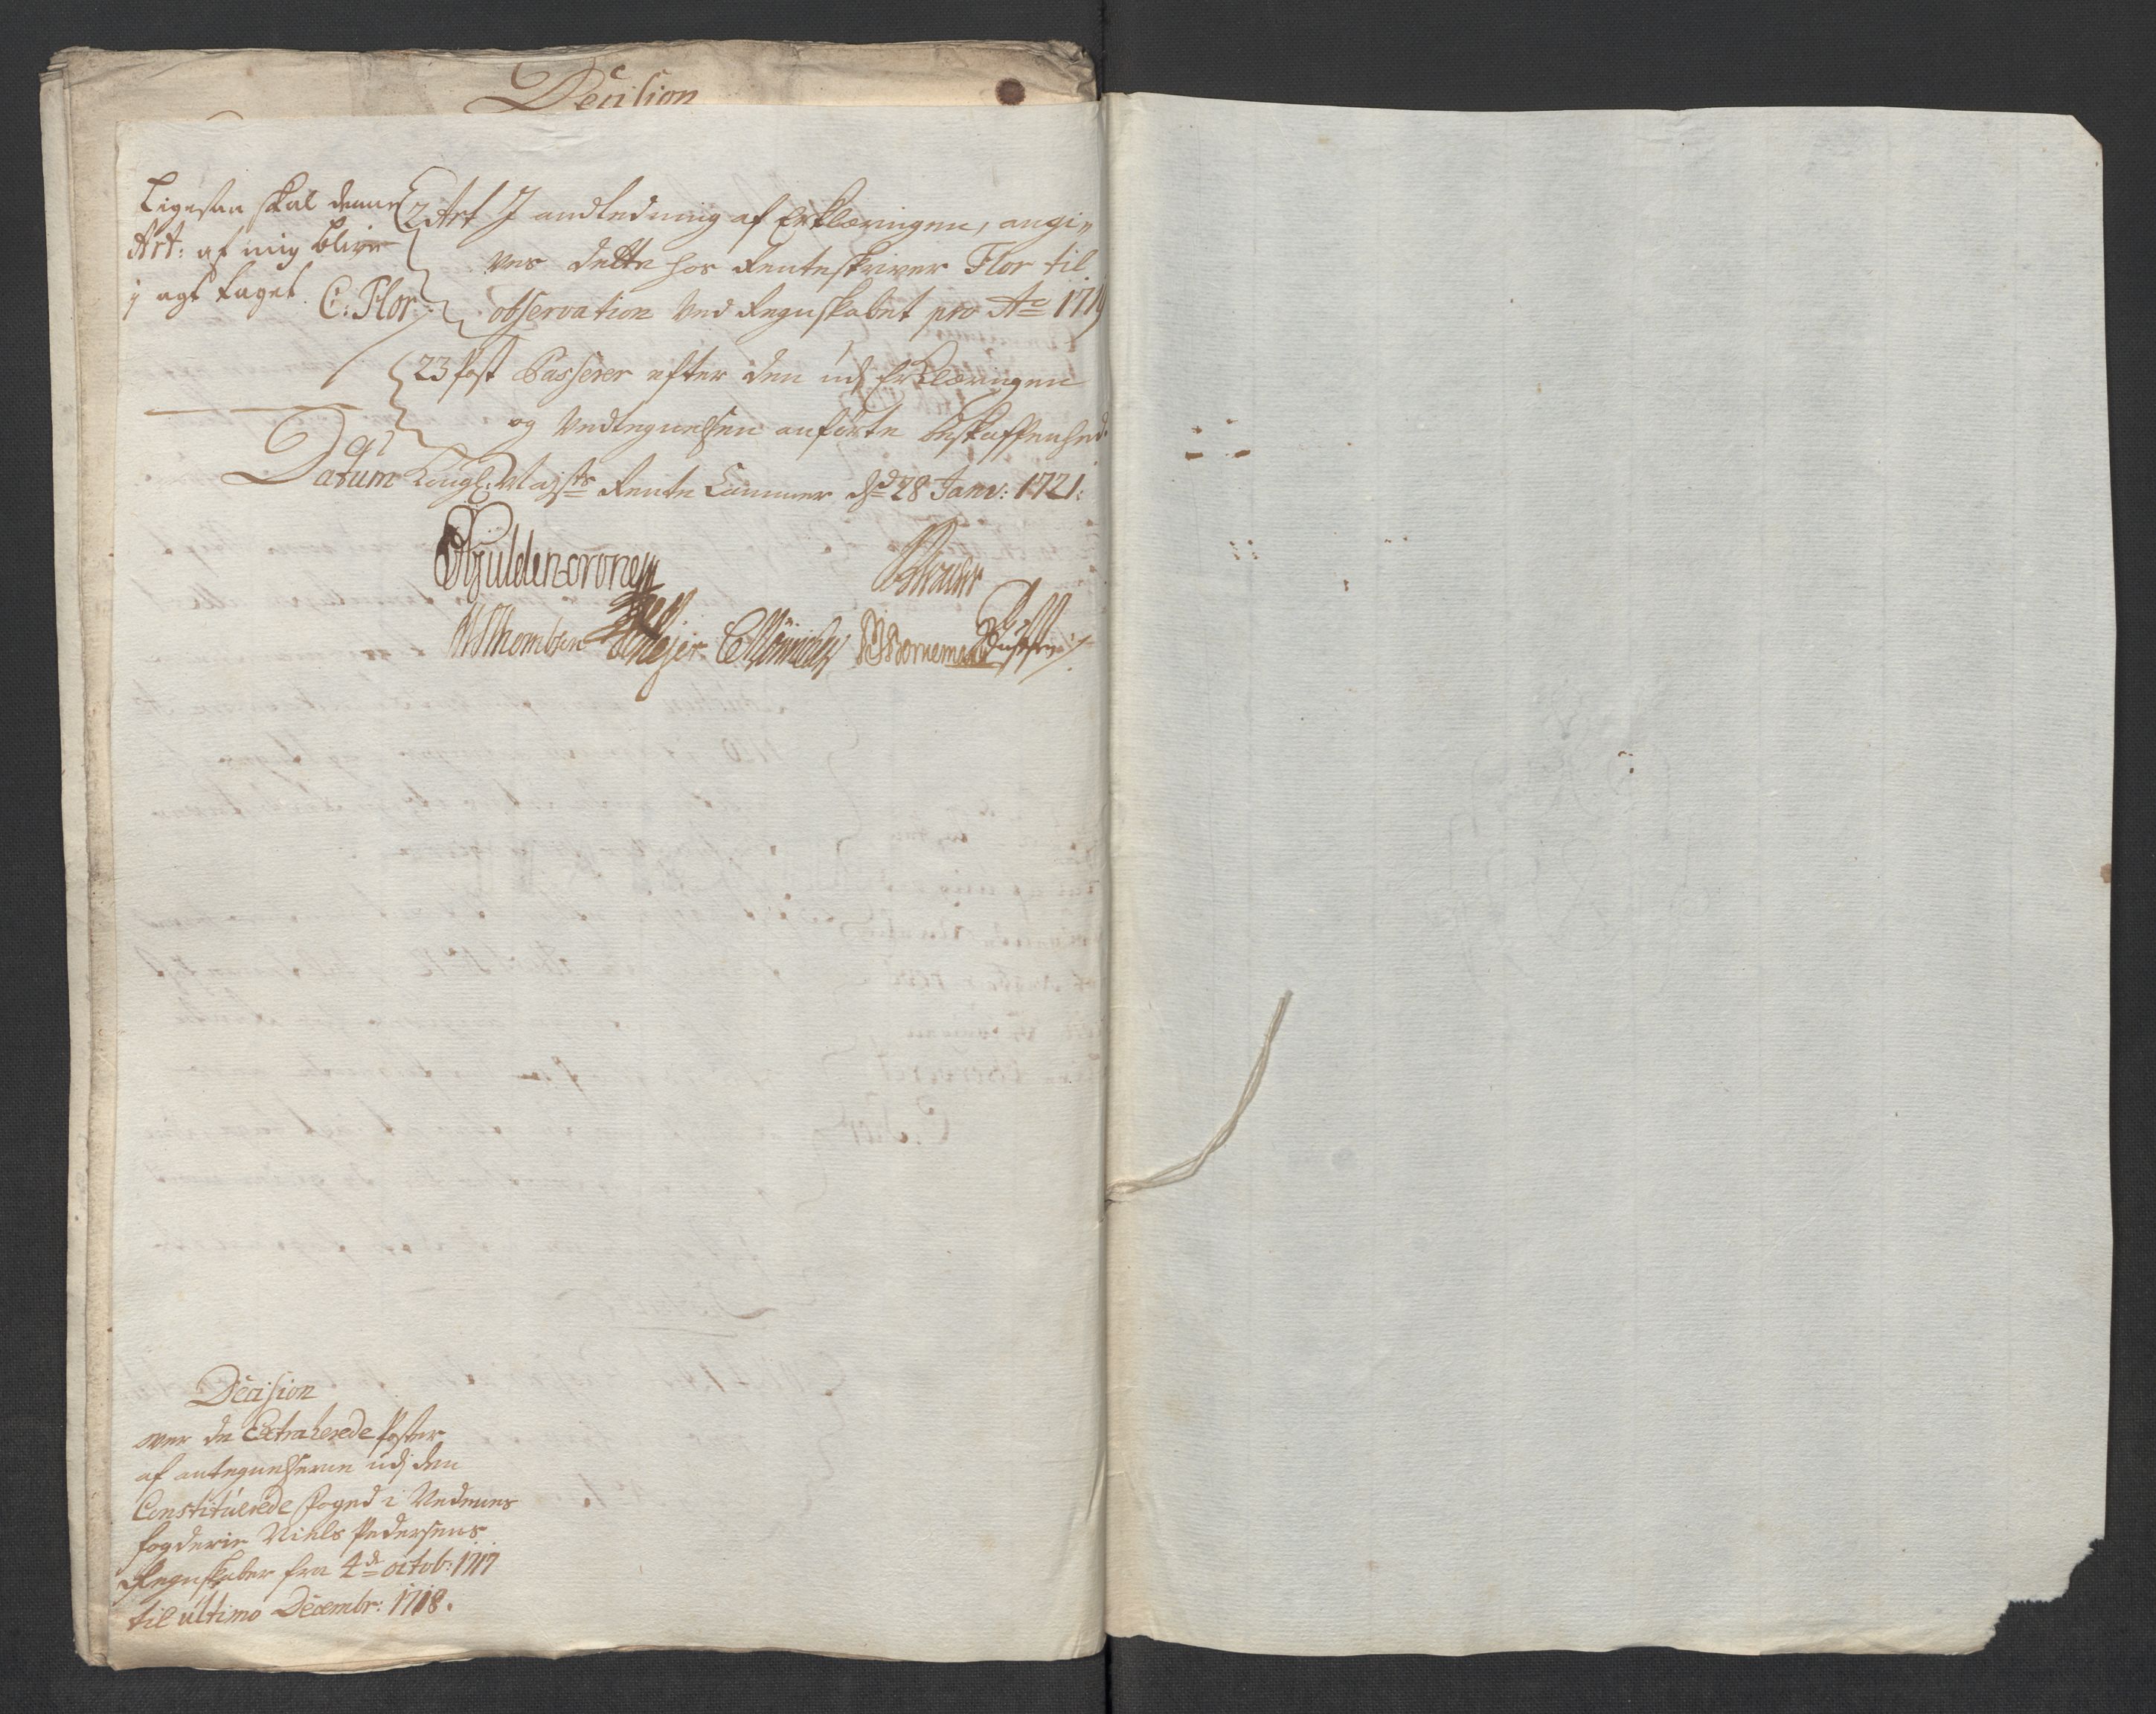 Decision
Ligesaa skal denne
Art: af mig blive
i agt taget. C: Flor
2 Art I andledning af Erklæringen, angi-
ves dette hos Renteskriver Flor til
observation ved Regnskabet pro Ao 1719
23 post Passerer efter den udj Erklæringen
og Vedtegnelsen anførte beskaffenhed.
Datum Kongl: Maysts Rente Cammer dd 28 Janv: 1721.
Gÿldencrone
W Thomsen Meyer C Mönnichen Bornemann
Decision
over de Extraherede Poster
af antegnelserne udj den
Constitúerede foged i Nedenes
fogderie Niels Pedersens
Regnskaber fra 4de octob: 1717
til último Decembr: 1718.